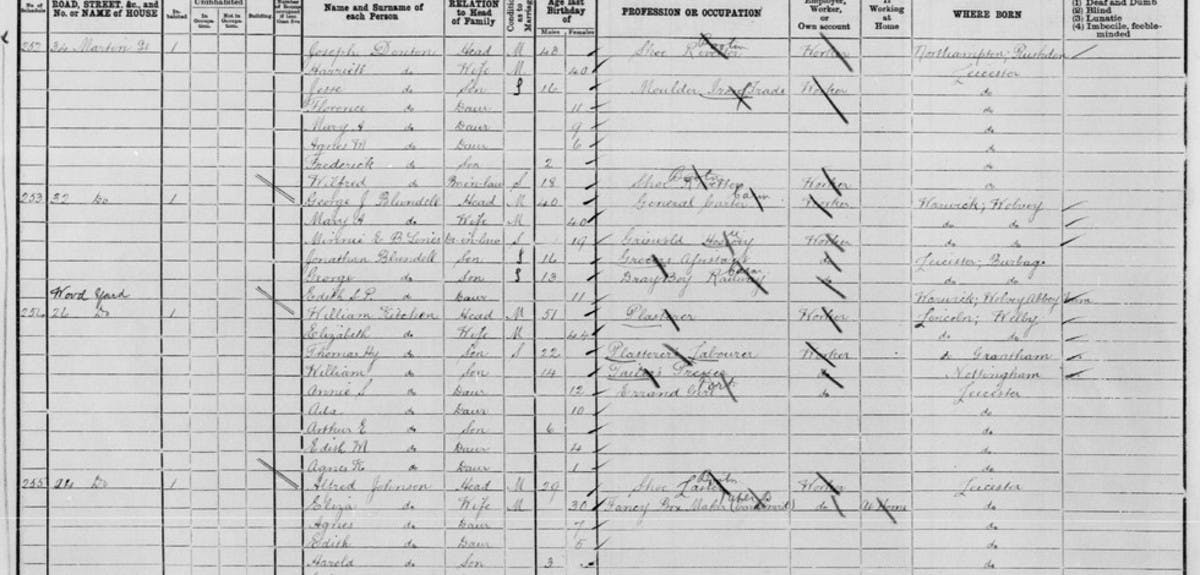 No. of Schedule ROAD, STREET, &c., and No. or NAME of HOUSE In-habited Uninhabited In Occupation. Not in Occupation. Building. Name and Surname of each Person RELATION to Head of Family Age last Birthday of Males Females PROFESSION OR OCCUPATION Employer, Worker, or Own account If Working at Home WHERE BORN (1) Deaf and Dumb (2) Blind (3) Lunatic (4) Imbecile, feeble-minded
252 34 1 Joseph Head M 43 Shoe Worker Northampton; Rushden
Harriett do Wife M 40 Leicester
Jesse do Son S 16 Moulder Iron Trade Worker do
Florence do Daur 11 do
Mary A do Daur 9 do
Agnes M do Daur 6 do
Frederick do Son 2 do
Wilfred do S 18 Shoe Worker
253 32 Do 1 George J Blundell Head M 40 General Carter Worker Warwick; Wolvey
Mary A do Wife M 40 do do
Minnie E B S 19 Griswold Worker do do
Jonathan Blundell Son S 16 Grocers do Leicester; Burbage
George do Son S 13 Dray Boy Railway do do do
Wood Yard
Edith S P do Daur 11 Warwick; Wolvey
254 26 Do 1 William Head M 51 Plasterer Worker Lincoln; Welby
Elizabeth do Wife M 44 do do
Thomas Hy do Son S 22 Plasterer's Labourer Worker do Grantham
William do Son 14 Tailor's Presser do Nottingham
Annie S do Daur 12 Errand Girl do Leicester
Ada do Daur 10 do
Arthur E do Son 6 do
Edith M do Daur 4 do
Agnes K do Daur 1 do
255 Do 1 Alfred Johnson Head M 29 Shoe Worker Leicester
Eliza do Wife M 30 Fancy Box Maker (Cardboard) do At Home do
Agnes do Daur 7 do
Edith do Daur 5 do
Harold do Son 3 do